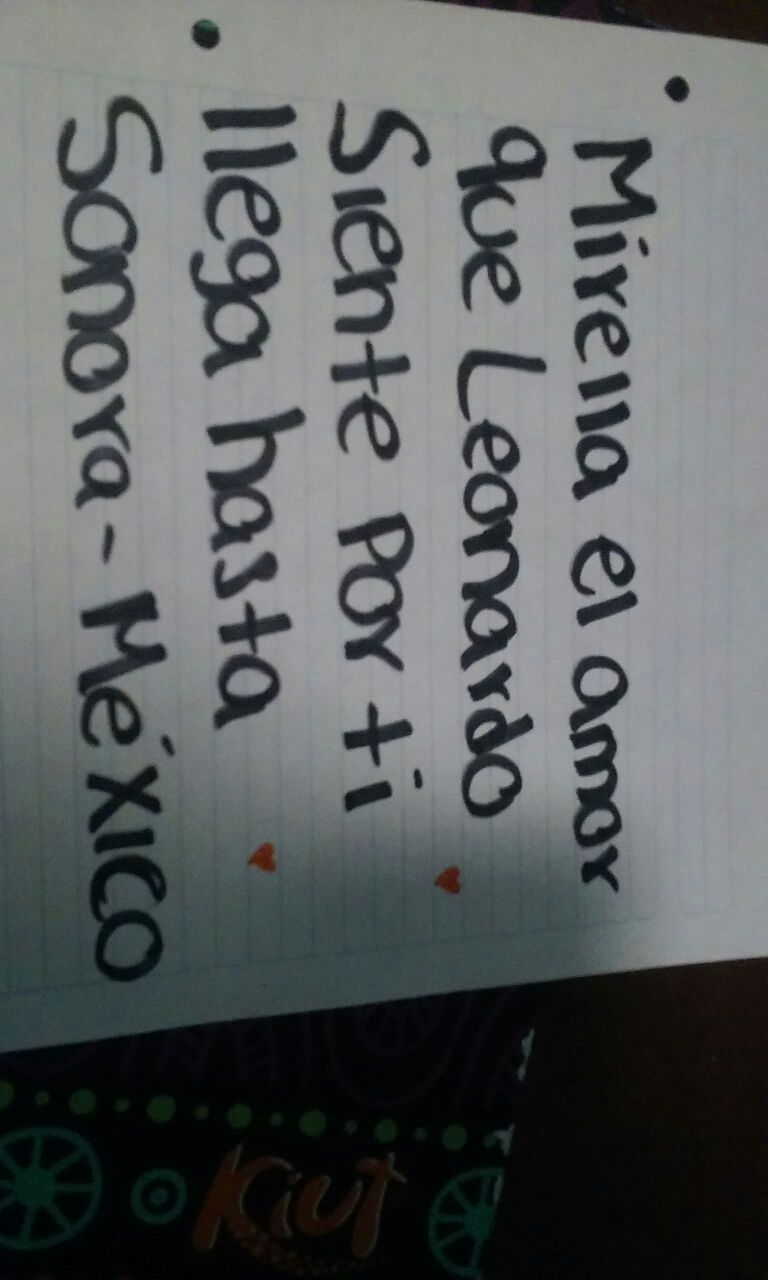 Mirella el amor
que Leonardo
Siente Por ti
llega hasta
Sonora - México
Kiut